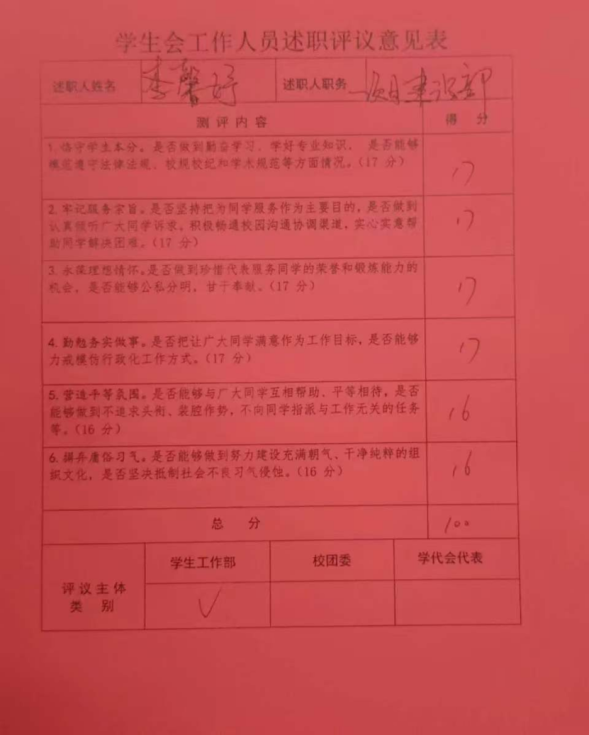 学生会工作人员述职评议意见表
述职人姓名 李馨 述职人职务 部
测评内容 得 分
1.恪守学生本分。是否做到勤奋学习、学好专业知识、是否能够
模范遵守法律法规、校规校纪和学术规范等方面情况。(17 分) 17
2.牢记服务宗旨。是否坚持把为同学服务作为主要目的,是否做到
认真倾听广大同学诉求、积极畅通校园沟通协调渠道,实心实意帮
助同学解决困难。(17 分) 17
3.永葆理想情怀。是否做到珍惜代表服务同学的荣誉和锻炼能力的
机会、是否能够公私分明、甘于奉献。(17 分) 17
4.勤勉务实做事。是否把让广大同学满意作为工作目标,是否能够
力戒模仿行政化工作方式。(17 分) 17
5.营造平等氛围。是否能够与广大同学互相帮助、平等相待,是否
能够做到不追求头衔、装腔作势,不向同学指派与工作无关的任务
等。(16 分) 16
6.摒弃庸俗习气。是否能够做到努力建设充满朝气、干净纯粹的组
织文化,是否坚决抵制社会不良习气侵蚀。(16 分) 16
总 分 100
评议主体
类 别
学生工作部 校团委 学代会代表
√